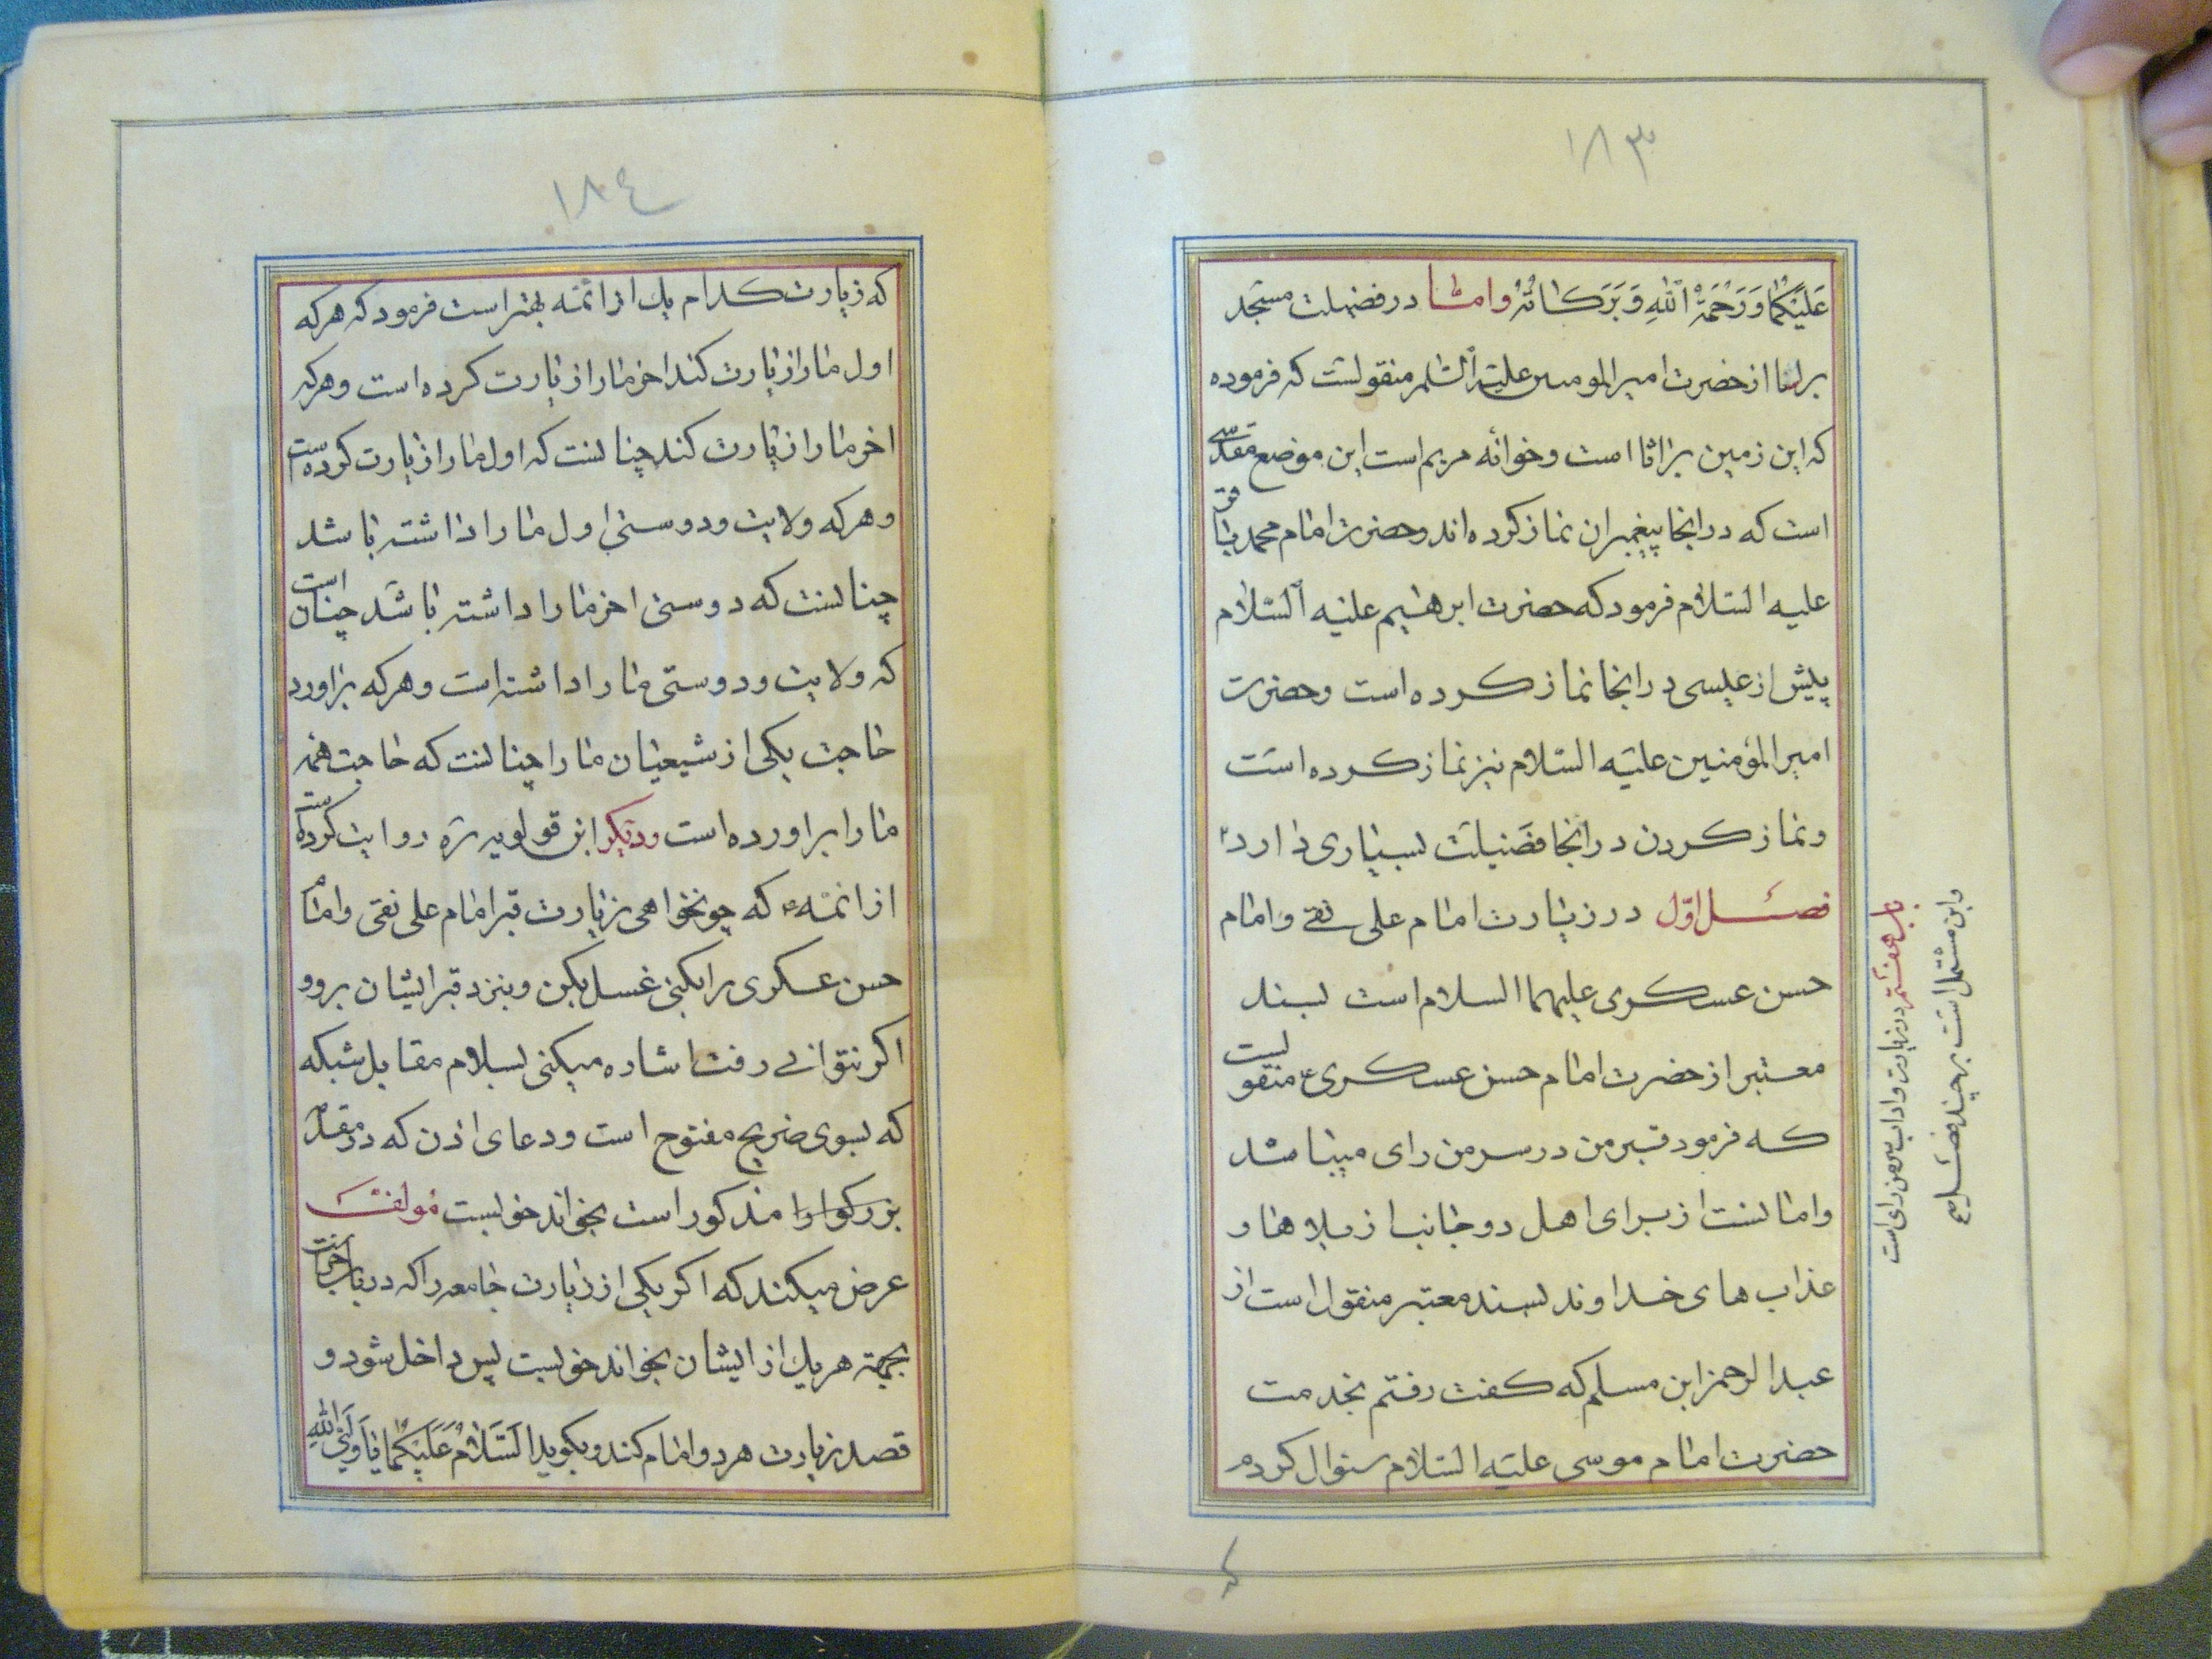 ۱۸۳
عَلَيْكُمَا وَرَحْمَةُ اللهِ وَبَرَكَاتُهُ واما در فضیلت مسجد
براثا از حضرت امیرالمومنین علیه السلم منقولست که فرموده
که این زمین براثا است وخوانه مریم است این موضع مقدسی
است که درانجا پیغمبران نماز کرده اند وحضرت امام محمد باقر
علیه السلام فرمود که حضرت ابرهیم علیه السلام
پیش از عیسی درانجا نماز کرده است وحضرت
امیرالمؤمنین علیه السلام نیز نماز کرده است
ونماز کردن درانجا فضیلت بسیاری دارد
فصل اوّل در زیارت امام علی نقی وامام
حسن عسکری علیهما السلام است بسند
معتبر از حضرت امام حسن عسکری ع منقولیست
که فرمود قبر من در سر من رای میباشد
وامانست از برای اهل دو جانب از بلاها و
عذاب های خداوند بسند معتبر منقول است از
عبدالرحمن ابن مسلم که کفت رفتم بخدمت
حضرت امام موسی علیه السلام سئوال کردم
باب هفتم در زیارت واداب سر من رای است
واین مشتمل است بر چند فصل
که
۱۸٤
که زیارت کدام یک از ائمه بهتر است فرمود که هر که
اول ما را زیارت کند اخر ما را زیارت کرده است وهر که
اخر ما را زیارت کند چنانست که اول ما را زیارت کرده است
وهر که ولایت ودوستی اول ما را داشته باشد
چنانست که دوستی اخر ما را داشته باشد چنان است
که ولایت ودوستی ما را داشته است وهر که براورد
حاجت یکی از شیعیان ما را چنانست که حاجت همه
ما را براورده است ودیکر ابن قولویه ره روایت کرده است
از ائمه ع که چون خواهی زیارت قبر امام علی نقی وامام
حسن عسکری را بکنی غسل بکن وبنزد قبر ایشان برو و
اکر نتوانی رفت اشاره میکنی بسلام مقابل شبکه
که بسوی ضریح مفتوح است ودعای اذن که در مقدم
بزرکوار وا مذکور است بخواند خوبست مولف
عرض میکند که اکر یکی از زیارت جامعه را که در باب
بجهة هر یک از ایشان بخواند خوبست پس داخل شود و
قصد زیارت هر دو امام کند وبکوید اَلسَّلَامُ عَلَيْكُمَا يَا وَلِيَّيِ اللهِ